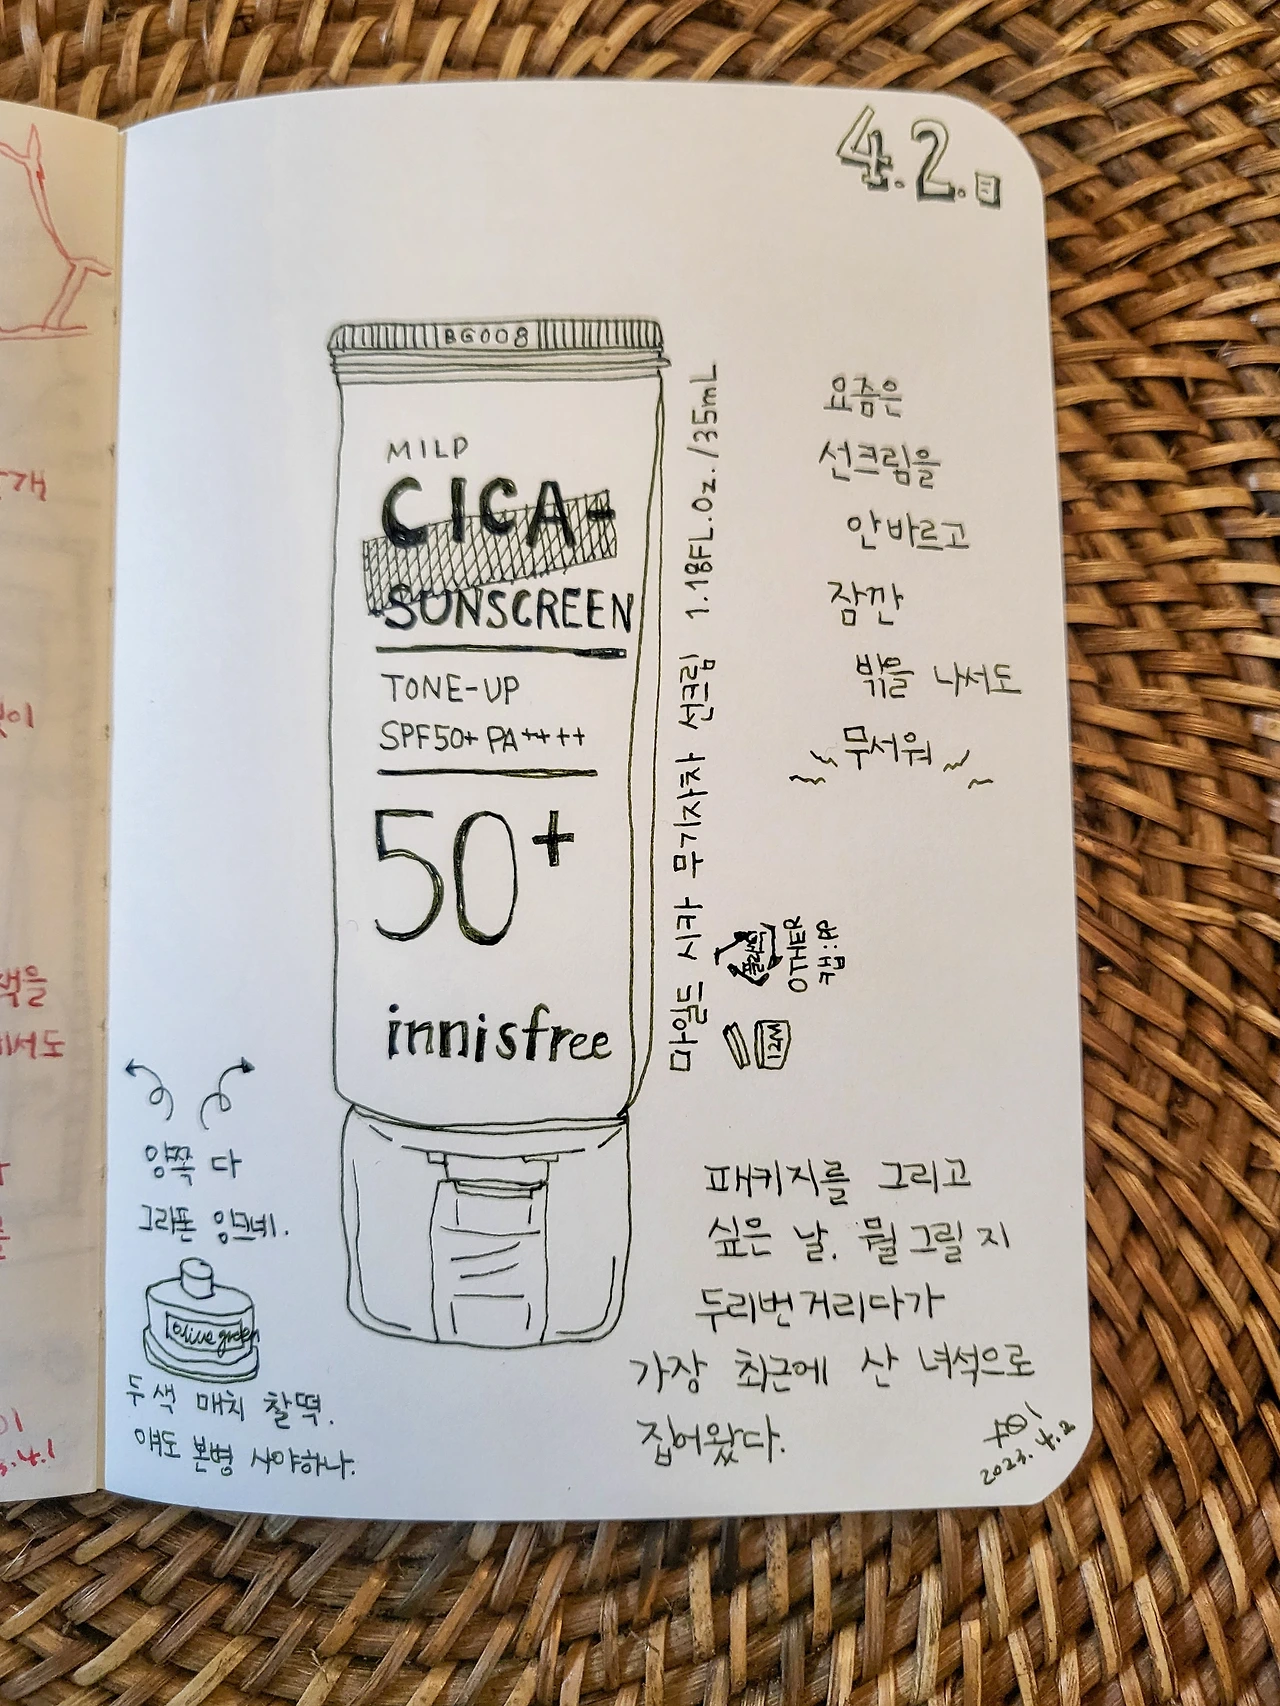 4.2.日
BG008
MILD
CICA-
SUNSCREEN
TONE-UP
SPF50+ PA++++
50+
innisfree
마일드 시카 무기자차 선크림 1.18FL.Oz./35mL
플라스틱
OTHER
캡:PP
12M
요즘은
선크림을
안바르고
잠깐
밖을 나서도
무서워
양쪽 다
그라폰 잉크네.
olive green
두색 매치 찰떡.
얘도 본병 사야하나.
패키지를 그리고
싶은 날. 뭘 그릴 지
두리번거리다가
가장 최근에 산 녀석으로
집어왔다.
2023.4.2
개
이
색을
서도
를
4.1